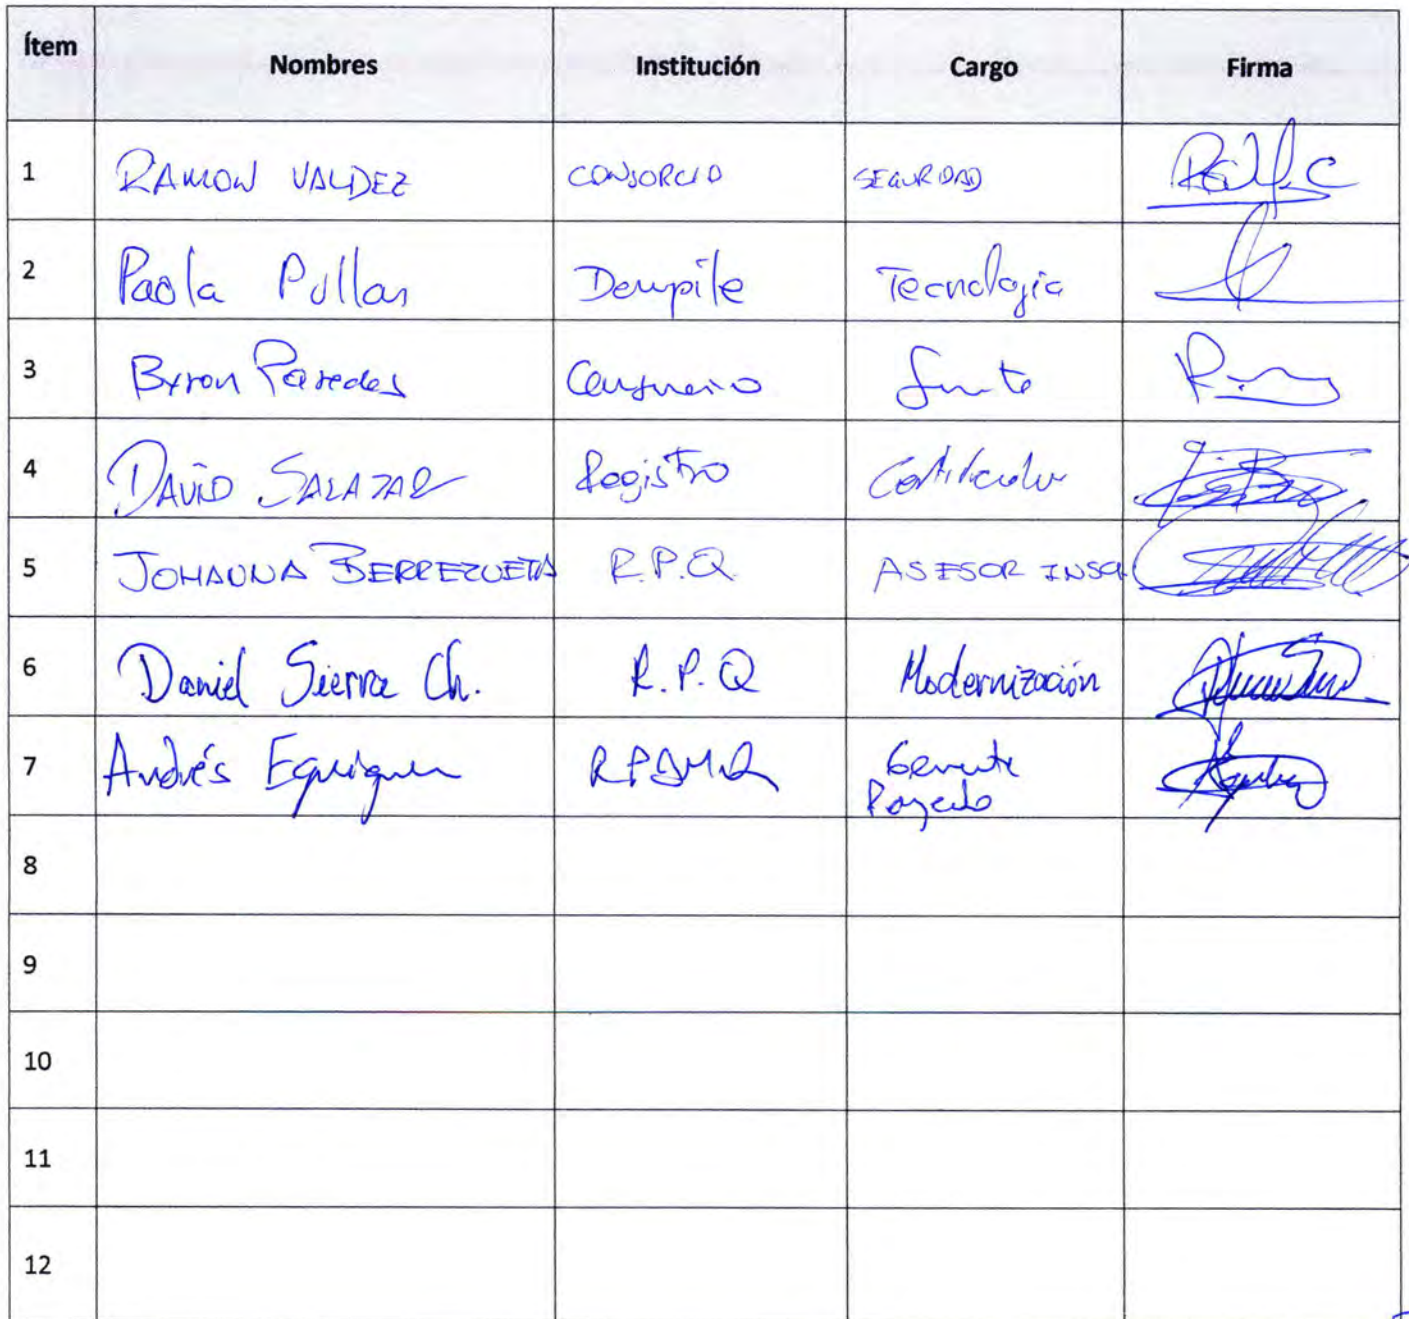 Ítem Nombres Institución Cargo Firma
1 RAMON VALDEZ CONSORCIO SEGURIDAD
2 Paola Pullas Tecnología
3 Byron Paredes
4 DAVID SALAZAR Registro
5 JOHANNA BERREZUETA R.P.Q. ASESOR
6 Daniel Sierra Ch. R.P.Q Modernización
7 Andrés Eguiguren RPDMQ Gerente
Proyecto
8
9
10
11
12